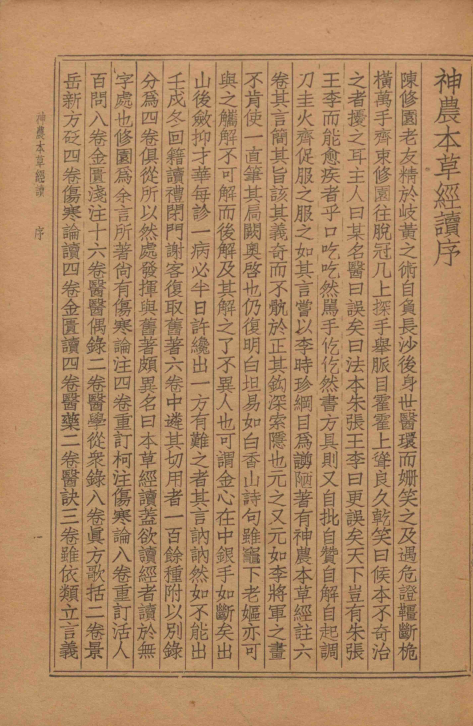 神農本草經讀序
陳修園老友精於岐黃之術自負長沙後身世醫環而姍笑之及遇危證韁斷桅
橫萬手齊束修園往脫冠几上探手舉脈目霍霍上聳良久乾笑曰候本不奇治
之者擾之耳主人曰某名醫曰誤矣曰法本朱張王李曰更誤矣天下豈有朱張
王李而能愈疾者乎口吃吃然罵手仡仡然書方具則又自批自贊自解自起調
刀圭火齊促服之服之如其言嘗以李時珍綱目為謭陋著有神農本草經註六
卷其言簡其旨該其義奇而不骫於正其鈎深索隱也元之又元如李將軍之畫
不肯使一直筆其扃闢奧啓也仍復明白坦易如白香山詩句雖竈下老嫗亦可
與之觿解不可解而後解及其解之了不異人也可謂金心在中銀手如斷矣出
山後斂抑才華每診一病必半日許纔出一方有難之者其言訥訥然如不能出
壬戌冬回籍讀禮閉門謝客復取舊著六卷中遴其切用者一百餘種附以別錄
分為四卷俱從所以然處發揮與舊著頗異名曰本草經讀蓋欲讀經者讀於無
字處也修園為余言所著尙有傷寒論注四卷重訂柯注傷寒論八卷重訂活人
百問八卷金匱淺注十六卷醫醫偶錄二卷醫學從衆錄八卷眞方歌括二卷景
岳新方砭四卷傷寒論讀四卷金匱讀四卷醫藥二卷醫訣三卷雖依類立言義
神農本草經讀 序